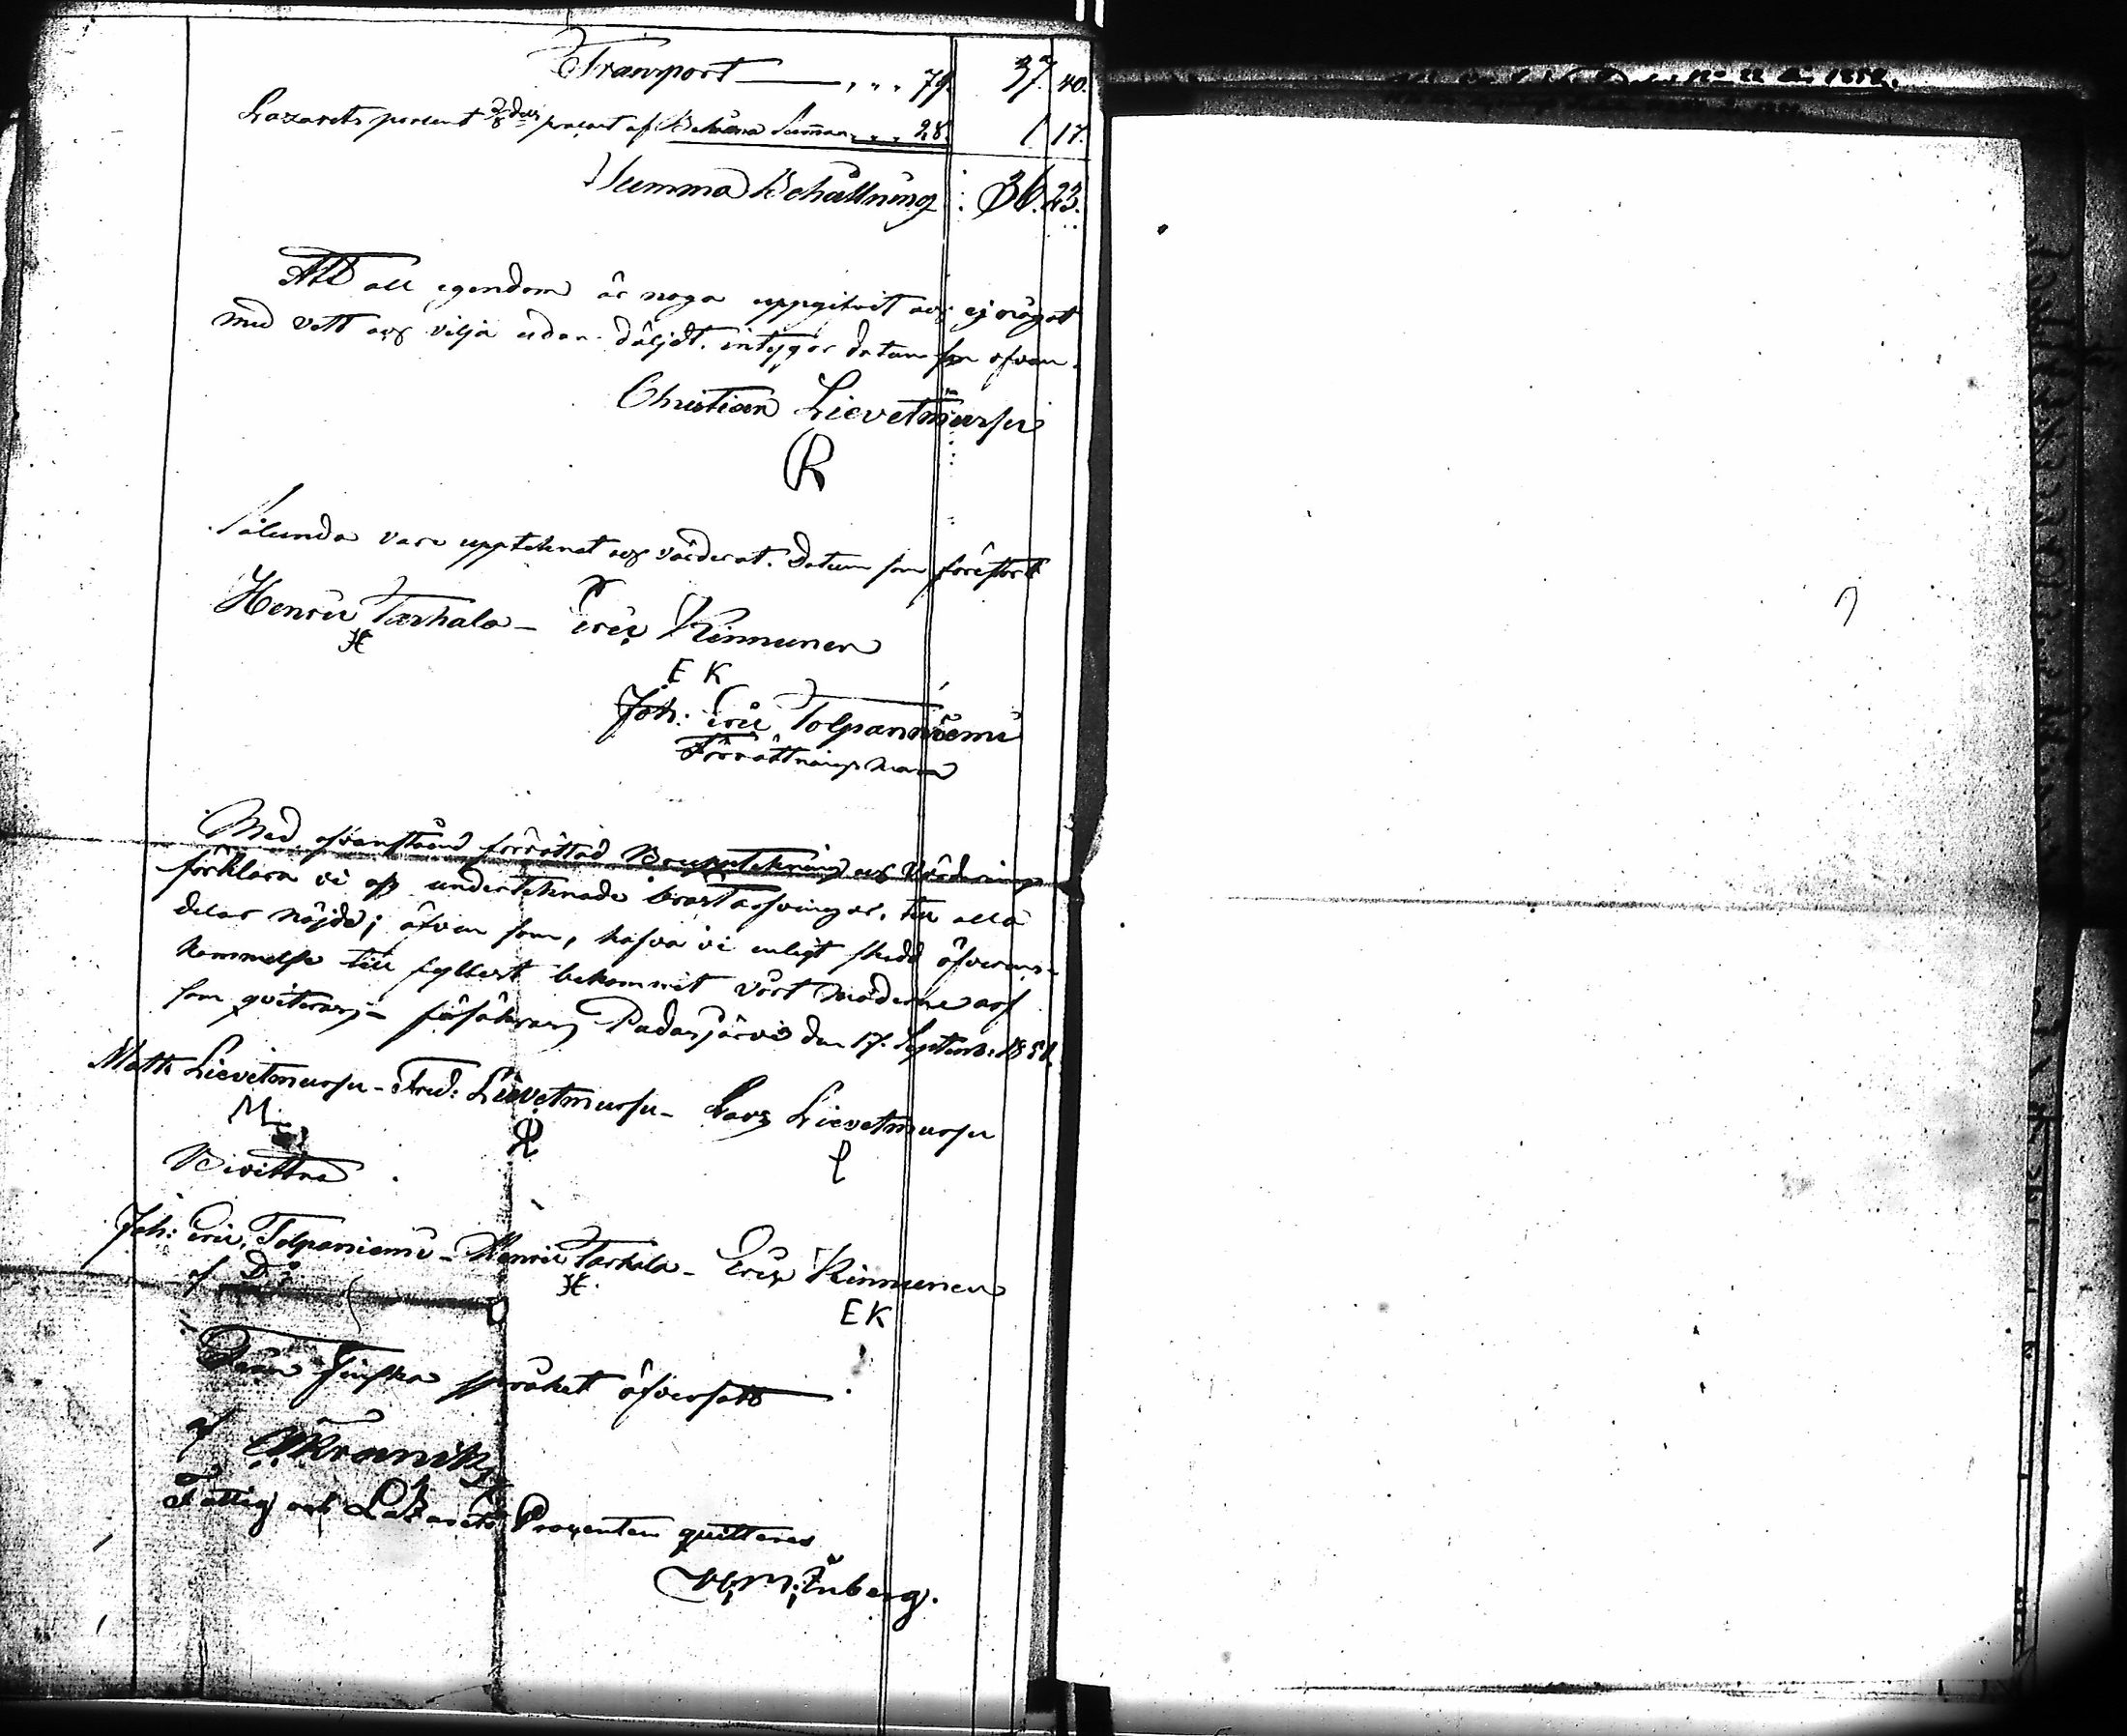 Transport — „ „ „ 79. 37. 40.
Lazarets procent 3/8 dels procent af Behålna Summan „ „ „ 28. 1 17.
Summa Behållning . 36. 23.
Att all egendom är noga uppgifvit och ej något
med vett och vilja udan döljdt, intygar datum som ofvan.
Christian Lievetmursu
R
Sålunda vara uppteknat och värderat. Datum som förestort
Henric Tarhala – Eric Kinnunen
H
E K
Joh: Eric Tolpanniemi
Förrättningsman
Med ofvanstående förrättad Boupptekning och Värdering
förklara vi oss underteknade bröstarfvingar, till alla
delar nöjde; äfven som, hafva vi enligt skedd öfverens-
kommelse till fyllest bekommit vårt möderne arf
som qviteras, försäkras, Padasjärvi den 17. Septemb: 1851.
Matts Lievetmursu – Fred: Lievetmursu – Lars Lievetmursu
M
L
Bevittna
Joh: Eric Tolpaniemi – Henric Tarhala – Eric Kinnunen
H
E K
Från Finska språket öfversatt
af
Fattig och Lazarets Procenten quitteras
Enberg.